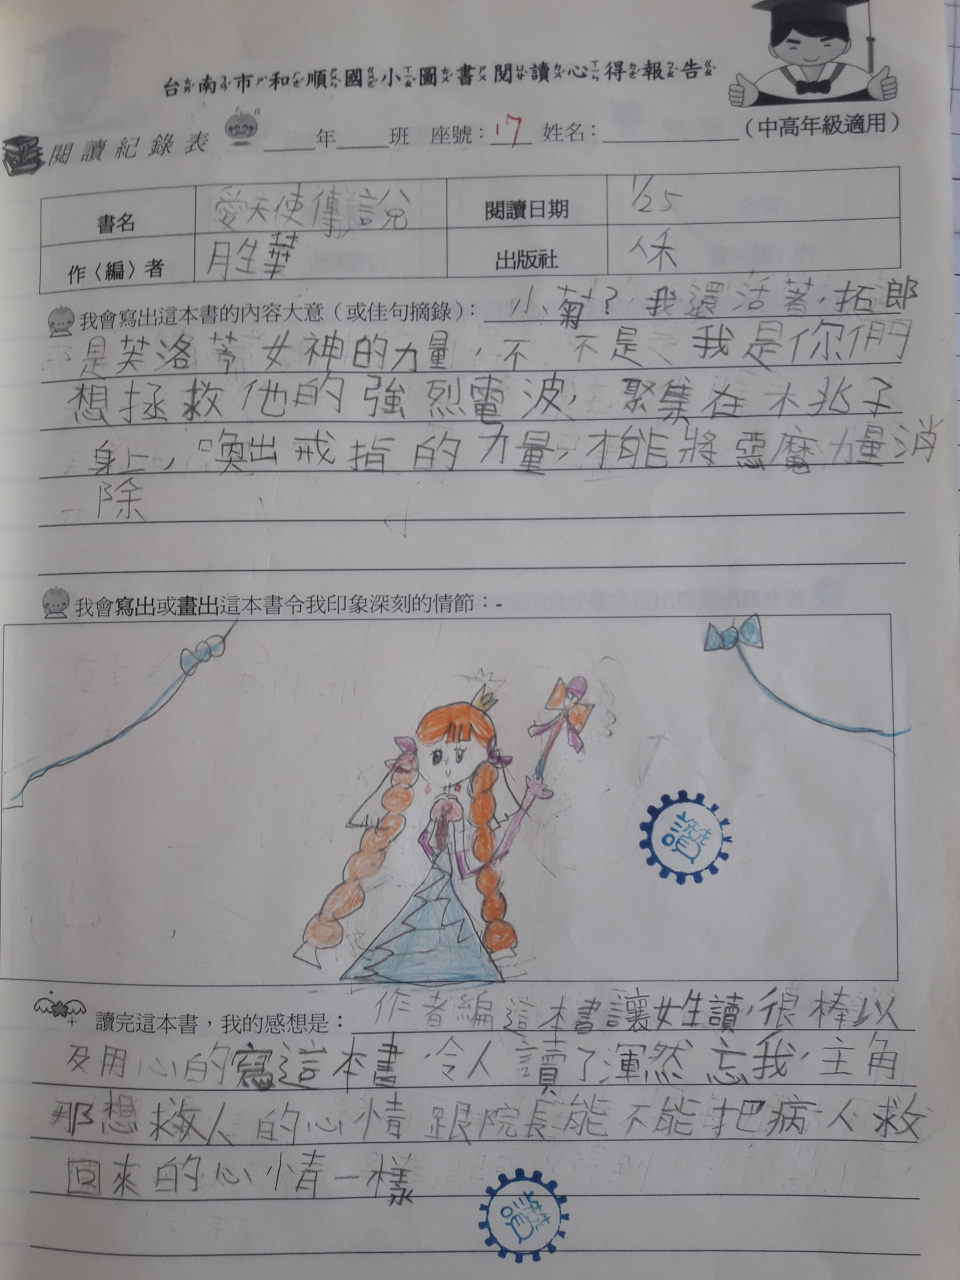 台南市和順國小圖書閱讀心得報告
閱讀紀錄表 ____年____班 座號：17 姓名：________ （中高年級適用）
書名 愛天使傳說 閱讀日期 1/25
作〈編〉者 月生華 出版社 禾
我會寫出這本書的內容大意（或佳句摘錄）：小菊？我還活著，拓郎
是芙洛蕶女神的力量，不 不是 我是你們
想拯救他的強烈電波，聚集在木兆子
身上，喚出戒指的力量，才能將惡魔力量消
除
我會寫出或畫出這本書令我印象深刻的情節：-
讚
讀完這本書，我的感想是：作者編這本書讓女生讀，很棒以
及用心的寫這本書，令人讀了渾然忘我，主角
那想救人的心情跟院長能不能把病人救
回來的心情一樣
讚